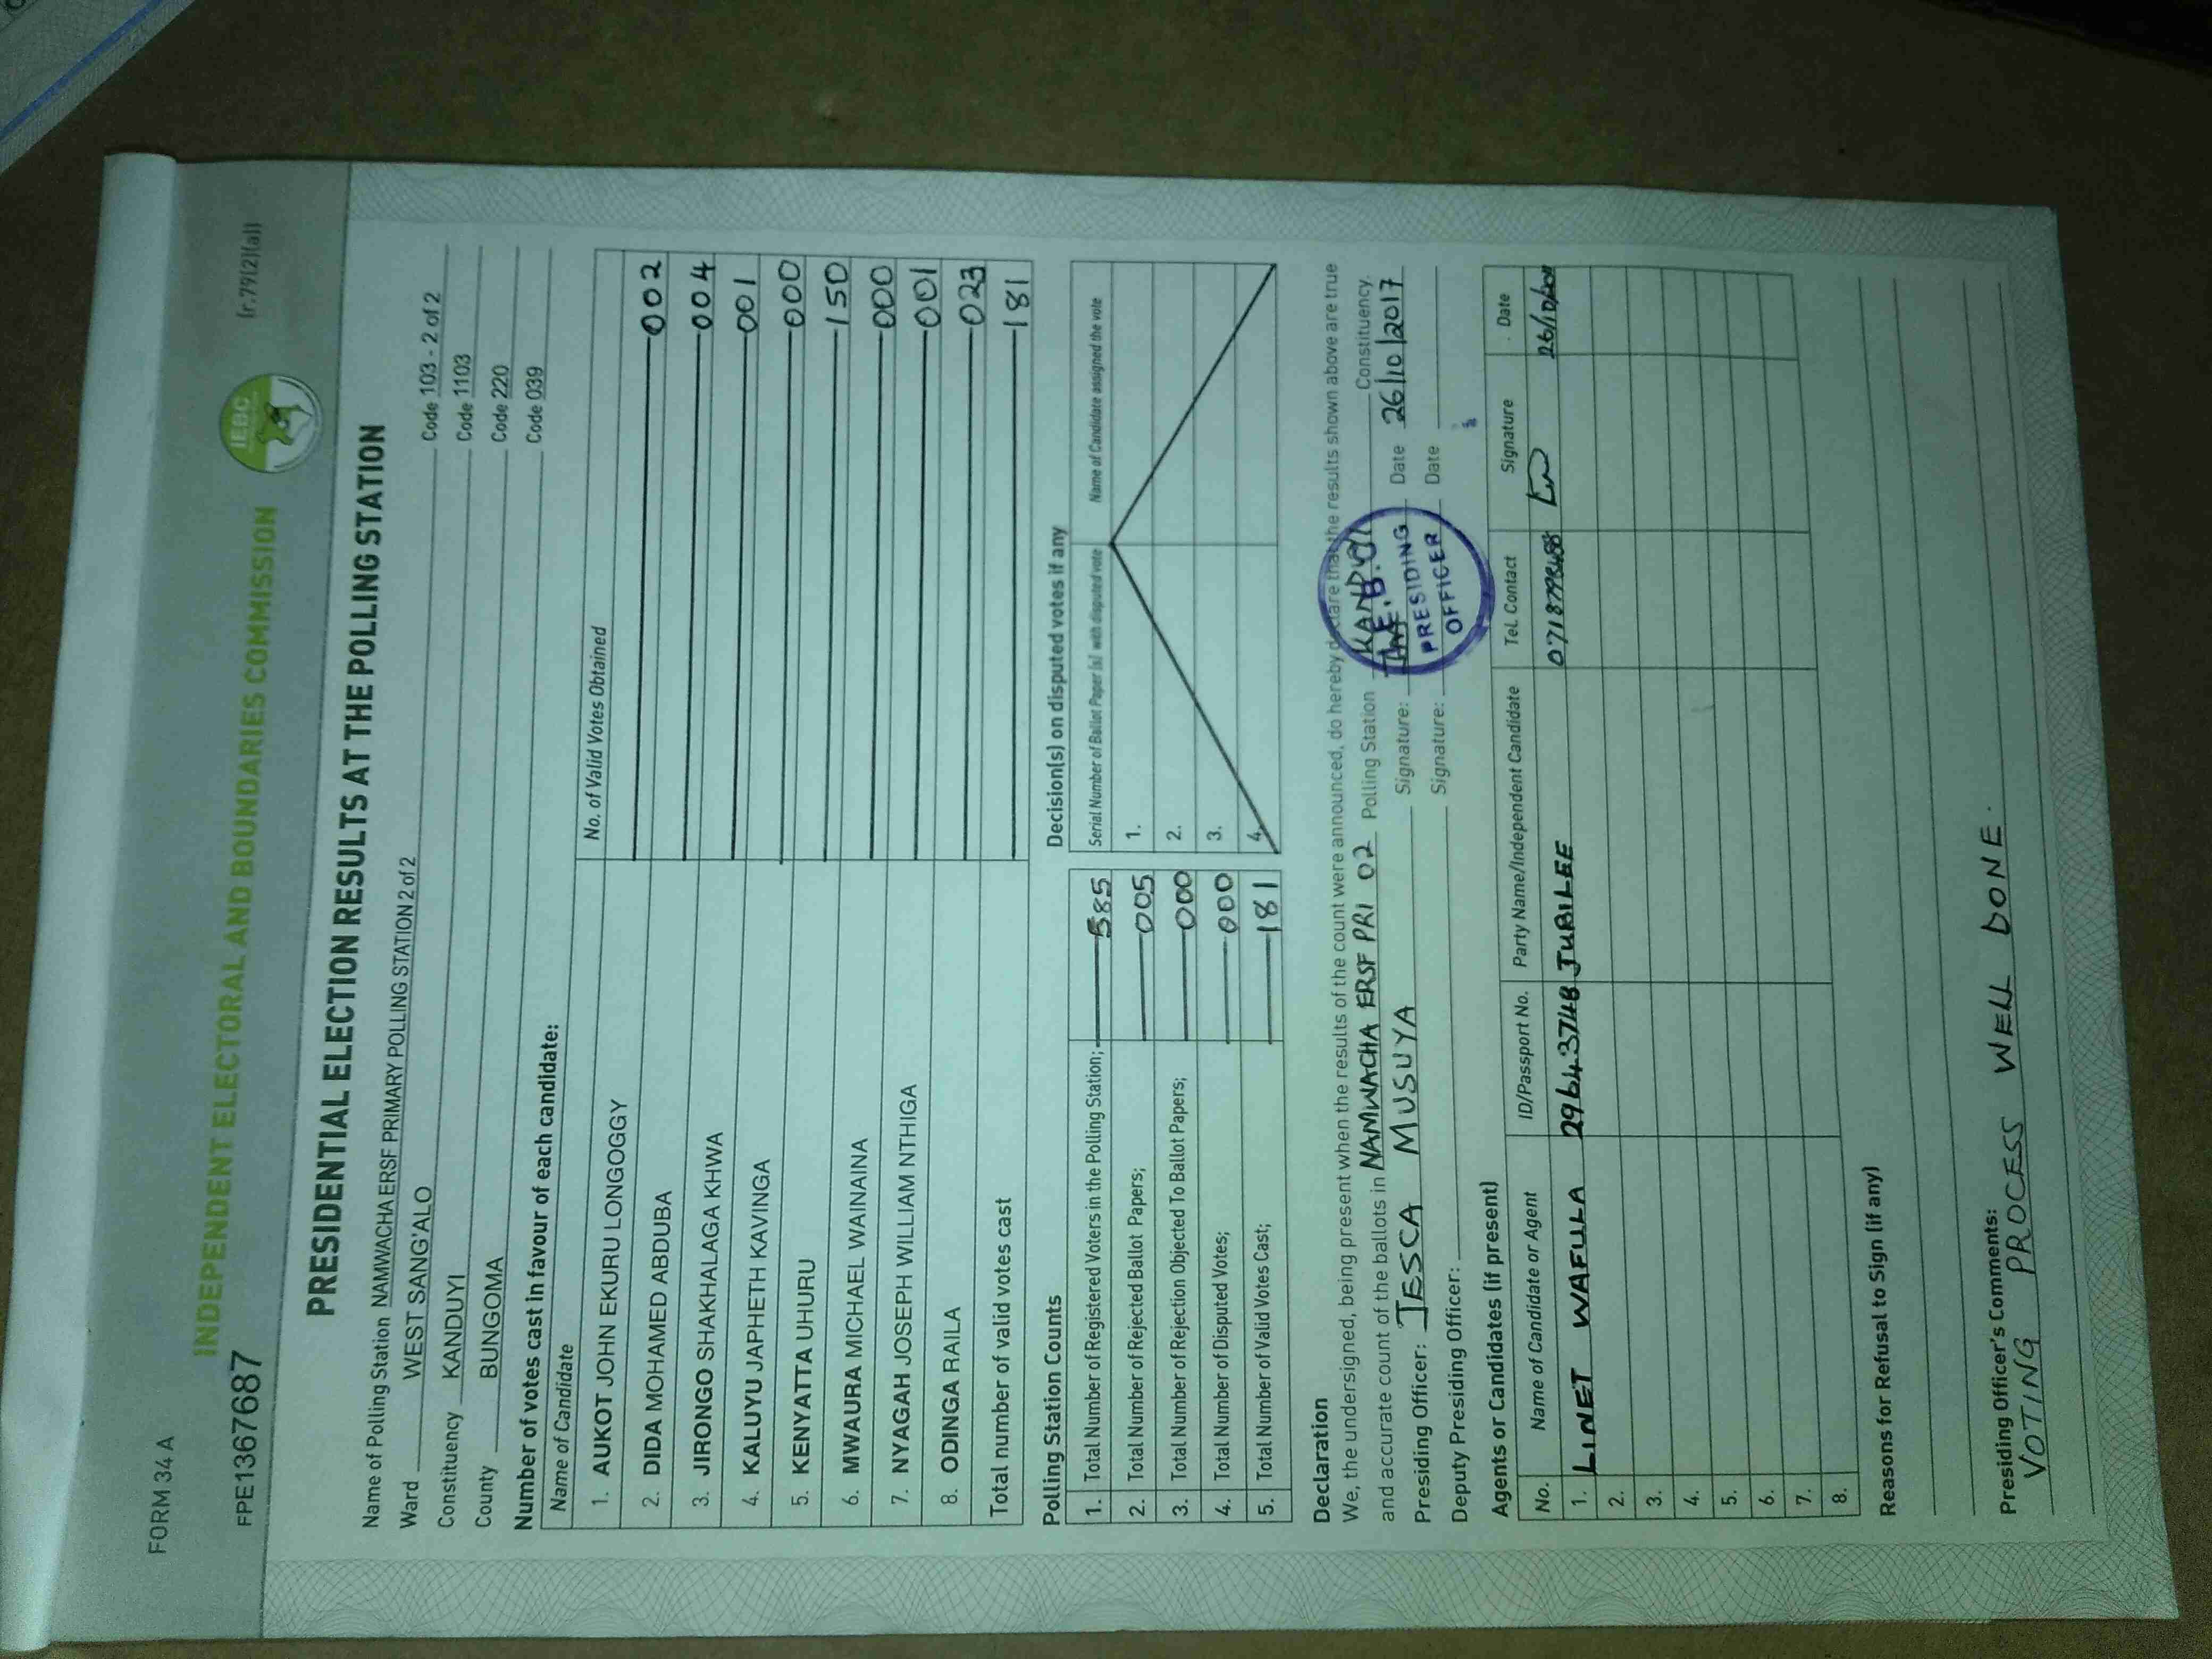 FORM 34 A
INDEPENDENT ELECTORAL AND BOUNDARIES COMMISSION
IEBC
FPE1367687
(r.79(2)(a))
PRESIDENTIAL ELECTION RESULTS AT THE POLLING STATION
Name of Polling Station NAMWACHA ERSF PRIMARY POLLING STATION 2 of 2 Code 103 - 2 of 2
Ward WEST SANG'ALO Code 1103
Constituency KANDUYI Code 220
County BUNGOMA Code 039
Number of votes cast in favour of each candidate:
Name of Candidate No. of Valid Votes Obtained
1. AUKOT JOHN EKURU LONGOGGY 002
2. DIDA MOHAMED ABDUBA 004
3. JIRONGO SHAKHALAGA KHWA 001
4. KALUYU JAPHETH KAVINGA 000
5. KENYATTA UHURU 150
6. MWAURA MICHAEL WAINAINA 000
7. NYAGAH JOSEPH WILLIAM NTHIGA 001
8. ODINGA RAILA 023
Total number of valid votes cast 181
Polling Station Counts
1. Total Number of Registered Voters in the Polling Station; 585
2. Total Number of Rejected Ballot Papers; 005
3. Total Number of Rejection Objected To Ballot Papers; 000
4. Total Number of Disputed Votes; 000
5. Total Number of Valid Votes Cast; 181
Decision(s) on disputed votes if any
Serial Number of Ballot Paper (s) with disputed vote Name of Candidate assigned the vote
1.
2.
3.
4.
Declaration
We, the undersigned, being present when the results of the count were announced, do hereby declare that the results shown above are true
and accurate count of the ballots in NAMWACHA ERSF PRI 02 Polling Station KANDUYI Constituency.
Presiding Officer: JESCA MUSUYA Signature: Date 26/10/2017
Deputy Presiding Officer: Signature: Date
I.E.B.C
PRESIDING
OFFICER
Agents or Candidates (if present)
No. Name of Candidate or Agent ID/Passport No. Party Name/Independent Candidate Tel. Contact Signature Date
1. LINET WAFULLA 29643748 JUBILEE
2.
3.
4.
5.
6.
7.
8.
Reasons for Refusal to Sign (if any)
Presiding Officer's Comments:
VOTING PROCESS WELL DONE.